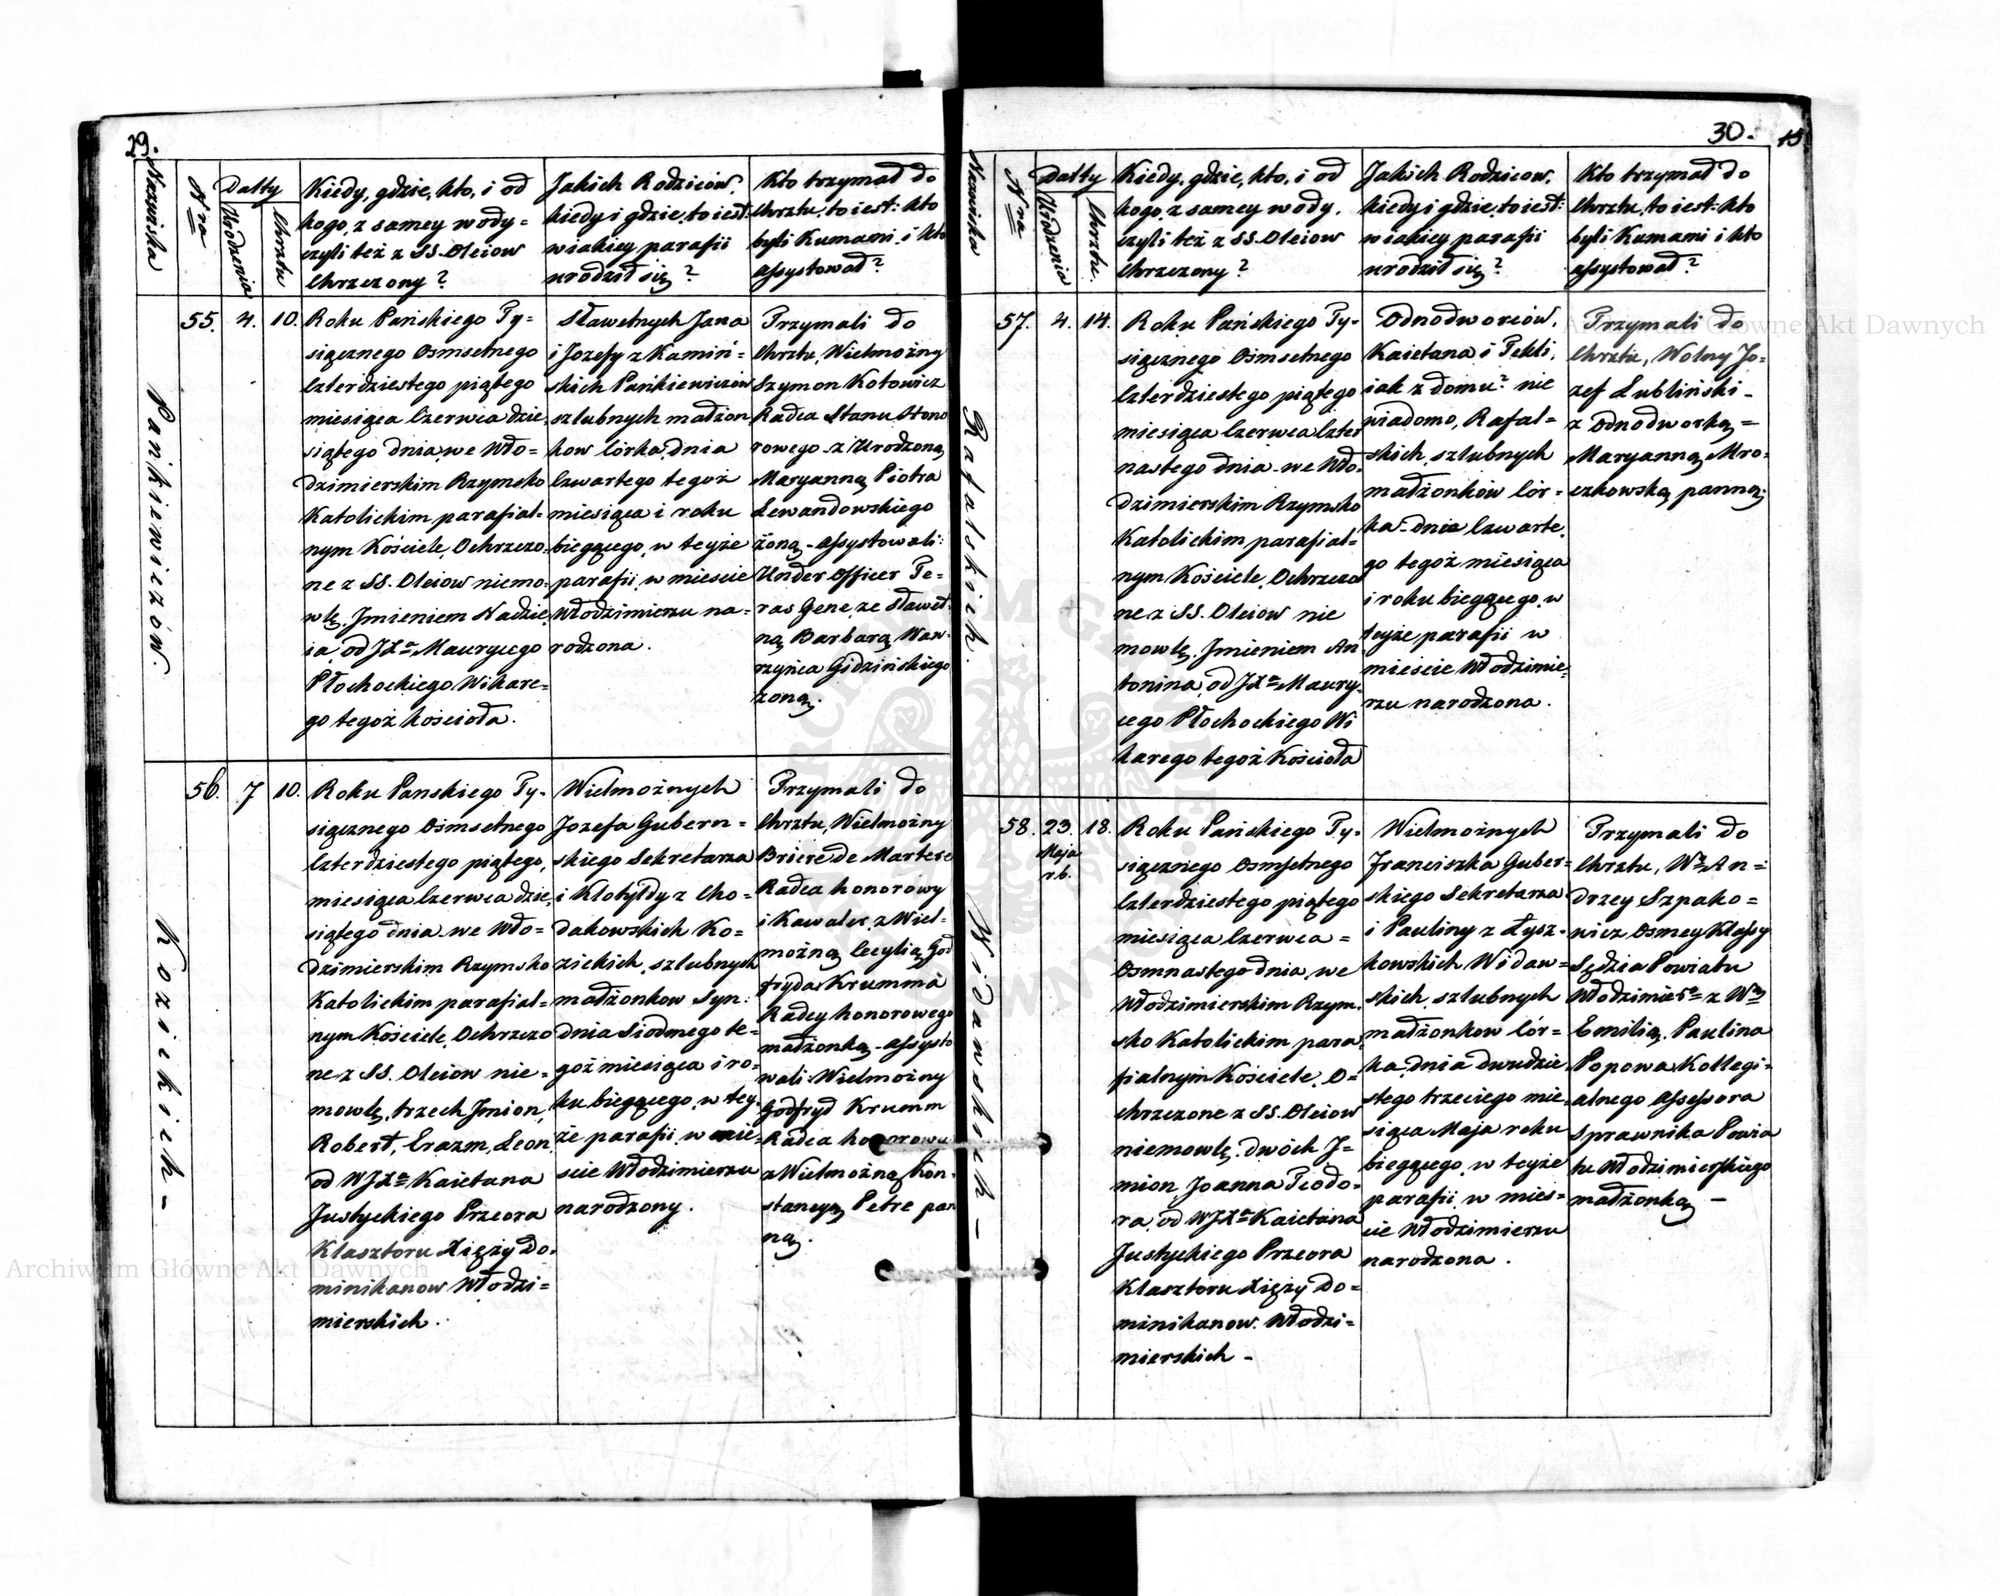 29.
Nazwiska
Nra
Datty
Urodzenia
Chrztu
Kiedy, gdzie, kto, i od
kogo, z samey wody=
czyli też z SS. Oleiow
Chrzczony?
Jakich Rodziców,
kiedy i gdzie, to iest:
w iakiey parafii
urodził się?
Kto trzymał do
Chrztu, to iest: kto
byli Kumami i kto
assystował?
Pankiewiczów.
55.
4.
10.
Roku Pańskiego Ty=
siącznego Osmsetnego
Czterdziestego piątego
miesiąca Czerwca dzie
siątego dnia, we Wło=
dzimierskim Rzymsko
Katolickim parafial=
nym Kościele, Ochrzczo
ne z SS. Oleiow niemo=
wlę, Jmieniem Nadzie
ia, od JXa Maurycego
Płochockiego Wikare=
go tegoż kościoła.
Sławetnych Jana
i Jozefy z Kamiń=
skich Pańkiewiczów
szlubnych małżon
kow Córka, dnia
Czwartego tegoż
miesiąca i roku
biegącego, w teyże
parafii, w miescie
Włodzimierzu na=
rodzona.
Trzymali do
Chrztu, Wielmożny
Szymon Kotowicz
Radca Stanu Hono
rowego z Urodzoną
Maryanną Piotra
Lewandowskiego
żoną - assystowali:
Under Officer Te=
ras Gene ze Sławet
ną Barbarą Waw=
rzyńca Gidzińskiego
żoną.
Kozickich -
56.
7
10.
Roku Panskiego Ty=
siącznego Osmsetnego
Czterdziestego piątego,
miesiąca Czerwca dzie,
siątego dnia we Wło=
dzimierskim Rzymsko
Katolickim parafial=
nym Kościele, Ochrzczo
ne z SS. Oleiow nie=
mowlę, trzech Jmion,
Robert, Erazm, Leon,
od WJXa Kaietana
Justyckiego Przeora
Klasztoru Xięży Do=
minikanow Włodzi=
mierskich.
Wielmożnych
Jozefa Gubern=
skiego Sekretarza
i Klotyldy z Cho=
dakowskich Ko=
zickich, szlubnych
małżonkow Syn:
dnia Siodmego te=
goż miesiąca i ro=
ku biegącego, w tey=
że parafii, w mie=
scie Włodzimierzu
narodzony.
Trzymali do
Chrztu, Wielmożny
Briere de Martere
Radca honorowy
i Kawaler, z Wiel=
możną Cecylią God
fryda Krumma
Radcy honorowego
małżonką - assysto
wali: Wielmożny
Godfryd Krumm
Radca honorowy
z Wielmożną Kon=
stancyą Petre pan
ną.
30.
15
Nazwiska
Nra
Datty
Urodzenia
Chrztu.
Kiedy, gdzie, kto, i od
kogo, z samey wody,
czyli też z SS. Oleiow
Chrzczony?
Jakich Rodzicow,
kiedy i gdzie, to iest:
w iakiey parafii
urodził się?
Kto trzymał do
Chrztu, to iest: kto
byli Kumami i kto
assystował?
Rafalskich.
57.
4.
14.
Roku Pańskiego Ty=
siącznego Ośmsetnego
Czterdziestego piątego
miesiąca Czerwca Czter
nastego dnia - we Wło=
dzimierskim Rzymsko
Katolickim parafial=
nym Kościele, Ochrzczo
ne z SS. Oleiow nie
mowlę, Jmieniem An
tonina, od JXa Maury,
cego Płochockiego Wi
karego tegoż Kościoła
Odnodworców,
Kaietana i Tekli,
iak z domu? nie
wiadomo, Rafal=
skich, szlubnych
małżonków Cór=
ka - dnia Czwarte,
go tegoż miesiąca
i roku biegącego, w
teyże parafii w
miescie Włodzimie,
rzu narodzona.
Trzymali do
Chrztu, Wolny Jo=
zef Lubliński -
z Odnodworką =
Maryanną Mro=
czkowską panną;
Widawskich -
58.
23.
Maja
r.b.
18.
Roku Pańskiego Ty=
siącznego Osmsetnego
Czterdziestego piątego
miesiąca Czerwca =
Osmnastego dnia, we
Włodzimierskim Rzym,
sko Katolickim para,
fialnym Kościele, O=
chrzczone z SS. Oleiow
niemowlę, dwoch J=
mion Joanna Teodo=
ra, od WJXa Kaietana
Justyckiego Przeora
Klasztoru Xięży Do=
minikanow. Włodzi=
mierskich -
Wielmożnych
Franciszka Guber=
skiego Sekretarza
i Pauliny z Łysz=
kowskich Widaw=
skich, szlubnych
małżonkow Cór=
ka, dnia dwudzie,
stego trzeciego mie=
siąca Maja roku
biegącego, w teyże
parafii, w mies=
cie Włodzimierzu
narodzona.
Trzymali do
Chrztu, Wy An=
drzey Szpako=
wicz Osmey Klassy
Sędzia Powiatu
Włodzimiego z Wą
Emilią, Paulina
Popowa Kollegi=
alnego Assessora
Sprawnika Powia
tu Włodzimierskiego
małżonką -
Archiwum Główne Akt Dawnych
Archiwum Główne Akt Dawnych